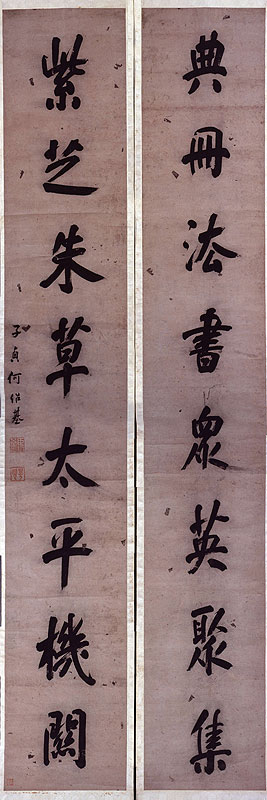 典冊法書眾英聚集
紫芝朱草太平機關
子貞何紹基